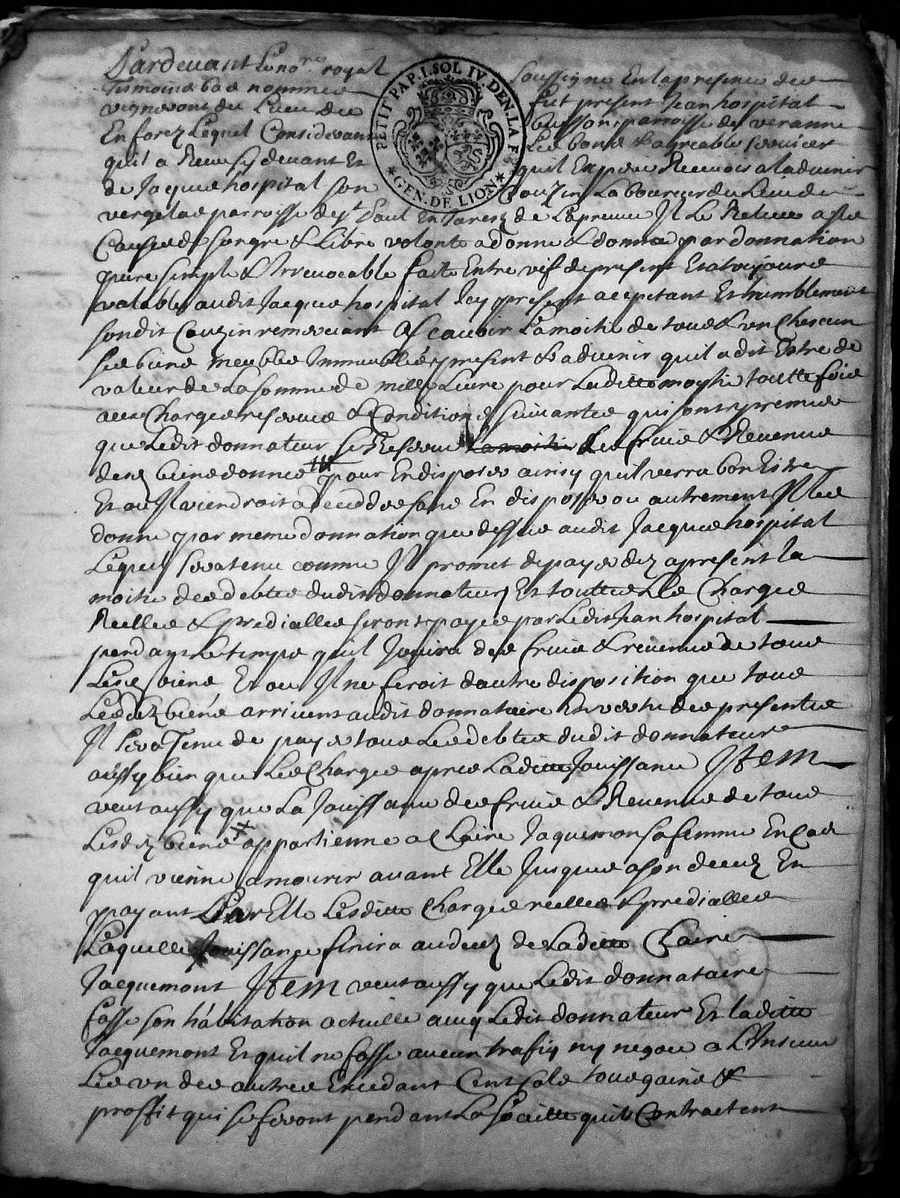 Pardevant le no.re royal soussigne En la presence des
tesmoins bas nommes fut present Jean hospital
vigneron du Lieu de buisson parroisse de veranne
En forez Lequel Considerant Les bons & agreable services
quil a Receus cy devant Et quil Espere Recevois a ladvenir
de Jacques hospital son Couzin Laboureur du Lieu de
vergelas parroisse de st paul En Jarest de Lepreuve Il Le Releve a ste
Cause de son gre & Libre volonte a donne & donne par donnation
pure simple & Irrevocable faite Entre vifs de present Et a toujours
valable audit Jacques hospital Icy present acceptant Et humblement
sondit Couzin remerciant A Scavoir La moitie de tous & un Chescun
ses biens meubles Immeubles present & advenir quil a dit Estre de
valeur de La somme de mille Livre pour Laditte moytie toutte fois
aux Charges reserves & Conditions suivantes qui sont premier
que Ledit donnateur se Reserve La moitie des fruis & Revenus
desd biens donnes pour En disposer ainsy quil verra bon Estre
Et ou Il viendroit a decedder sans En disposer ou autrement Il les
donne par meme donnation que dessus audit Jacques hospital
Lequel sera tenu comme Il promet de payer dez a present La
moitie des debtes dudit donnateur Et touttes Les Charges
Reelles & predialles seront payes par Ledit Jean hospital
pendant Le temps quil Jouira des fruis & revenus de tous
Lesd biens Et ou Il ne feroit dautre disposition que tous
Lesdz biens arrivent audit donnataire En vertu des presentes
Il sera Tenu de payer tous Les debtes dudit donnateur
aussy bien que Les Charges apres Laditte Jouissance Item
veut aussy que La Jouissance des fruis & Revenus de tous
Lesdz biens appartienne a Claire Jaquemon sa femme En cas
quil vienne a mourir avant Elle Jusques a son decedz En
payant Par Elle Lesdittes Charges reelles & predialles
Laquelle Jouissance finira au decedz de Laditte Claire
Jacquemont Item veut aussy que Ledit donnataire
fasse son habitation actuelle avec Ledit donnateur Et laditte
Jacquemont Et quil ne fasse aucun trafiq ny negoce a LInsceu
Les un des autres Excedant Cent sols tous gains &
proffit qui se feront pendant La socitte quils Contractent
PETIT PAP. I. SOL IV. DEN. LA F. GEN. DE LION